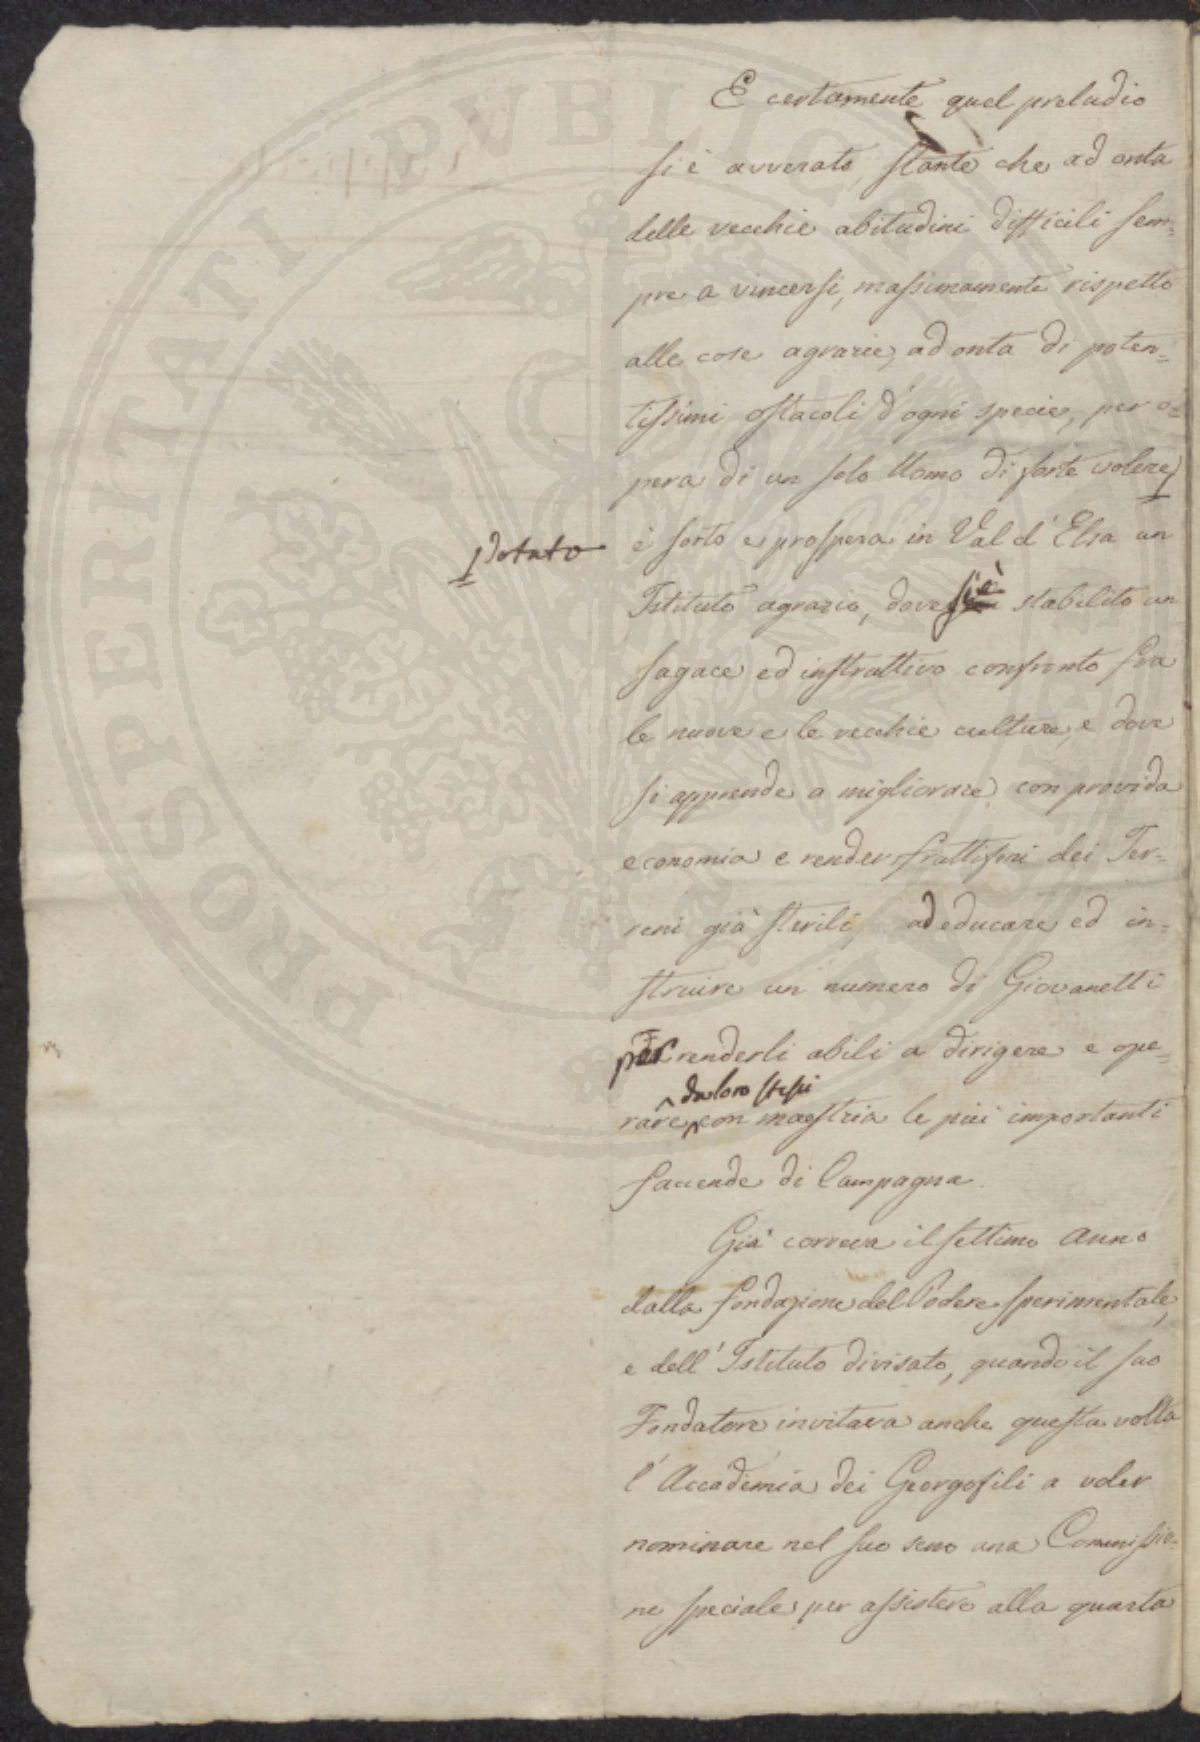 E certamente quel preludio
si è avverato, stante che ad onta
delle vecchie abitudini difficili sem=
pre a vincersi, massimamente rispetto
alle cose agrarie, ad onta di poten=
tissimi ostacoli d'ogni specie, per o=
pera di un solo Uomo di forte volere
dotato
è sorto e prospera in Val d'Elsa un
Istituto agrario, dove si è stabilito un
sagace ed instruttivo confronto fra
le nuove e le vecchie culture, e dove
si apprende a migliorare con provvida
economia e render fruttiferi dei Ter=
reni già sterili, ad educare ed in=
struire un numero di Giovanetti
per renderli abili a dirigere e ope=
da loro stessi
rare con maestria le più importanti
faccende di Campagna.
Già correva il settimo Anno
dalla fondazione del Podere sperimentale,
e dell'Istituto divisato, quando il suo
Fondatore invitava anche questa volta
l'Accademia dei Georgofili a voler
nominare nel suo seno una Commissio=
ne speciale per assistere alla quarta
PROSPERITATI PVBLICAE